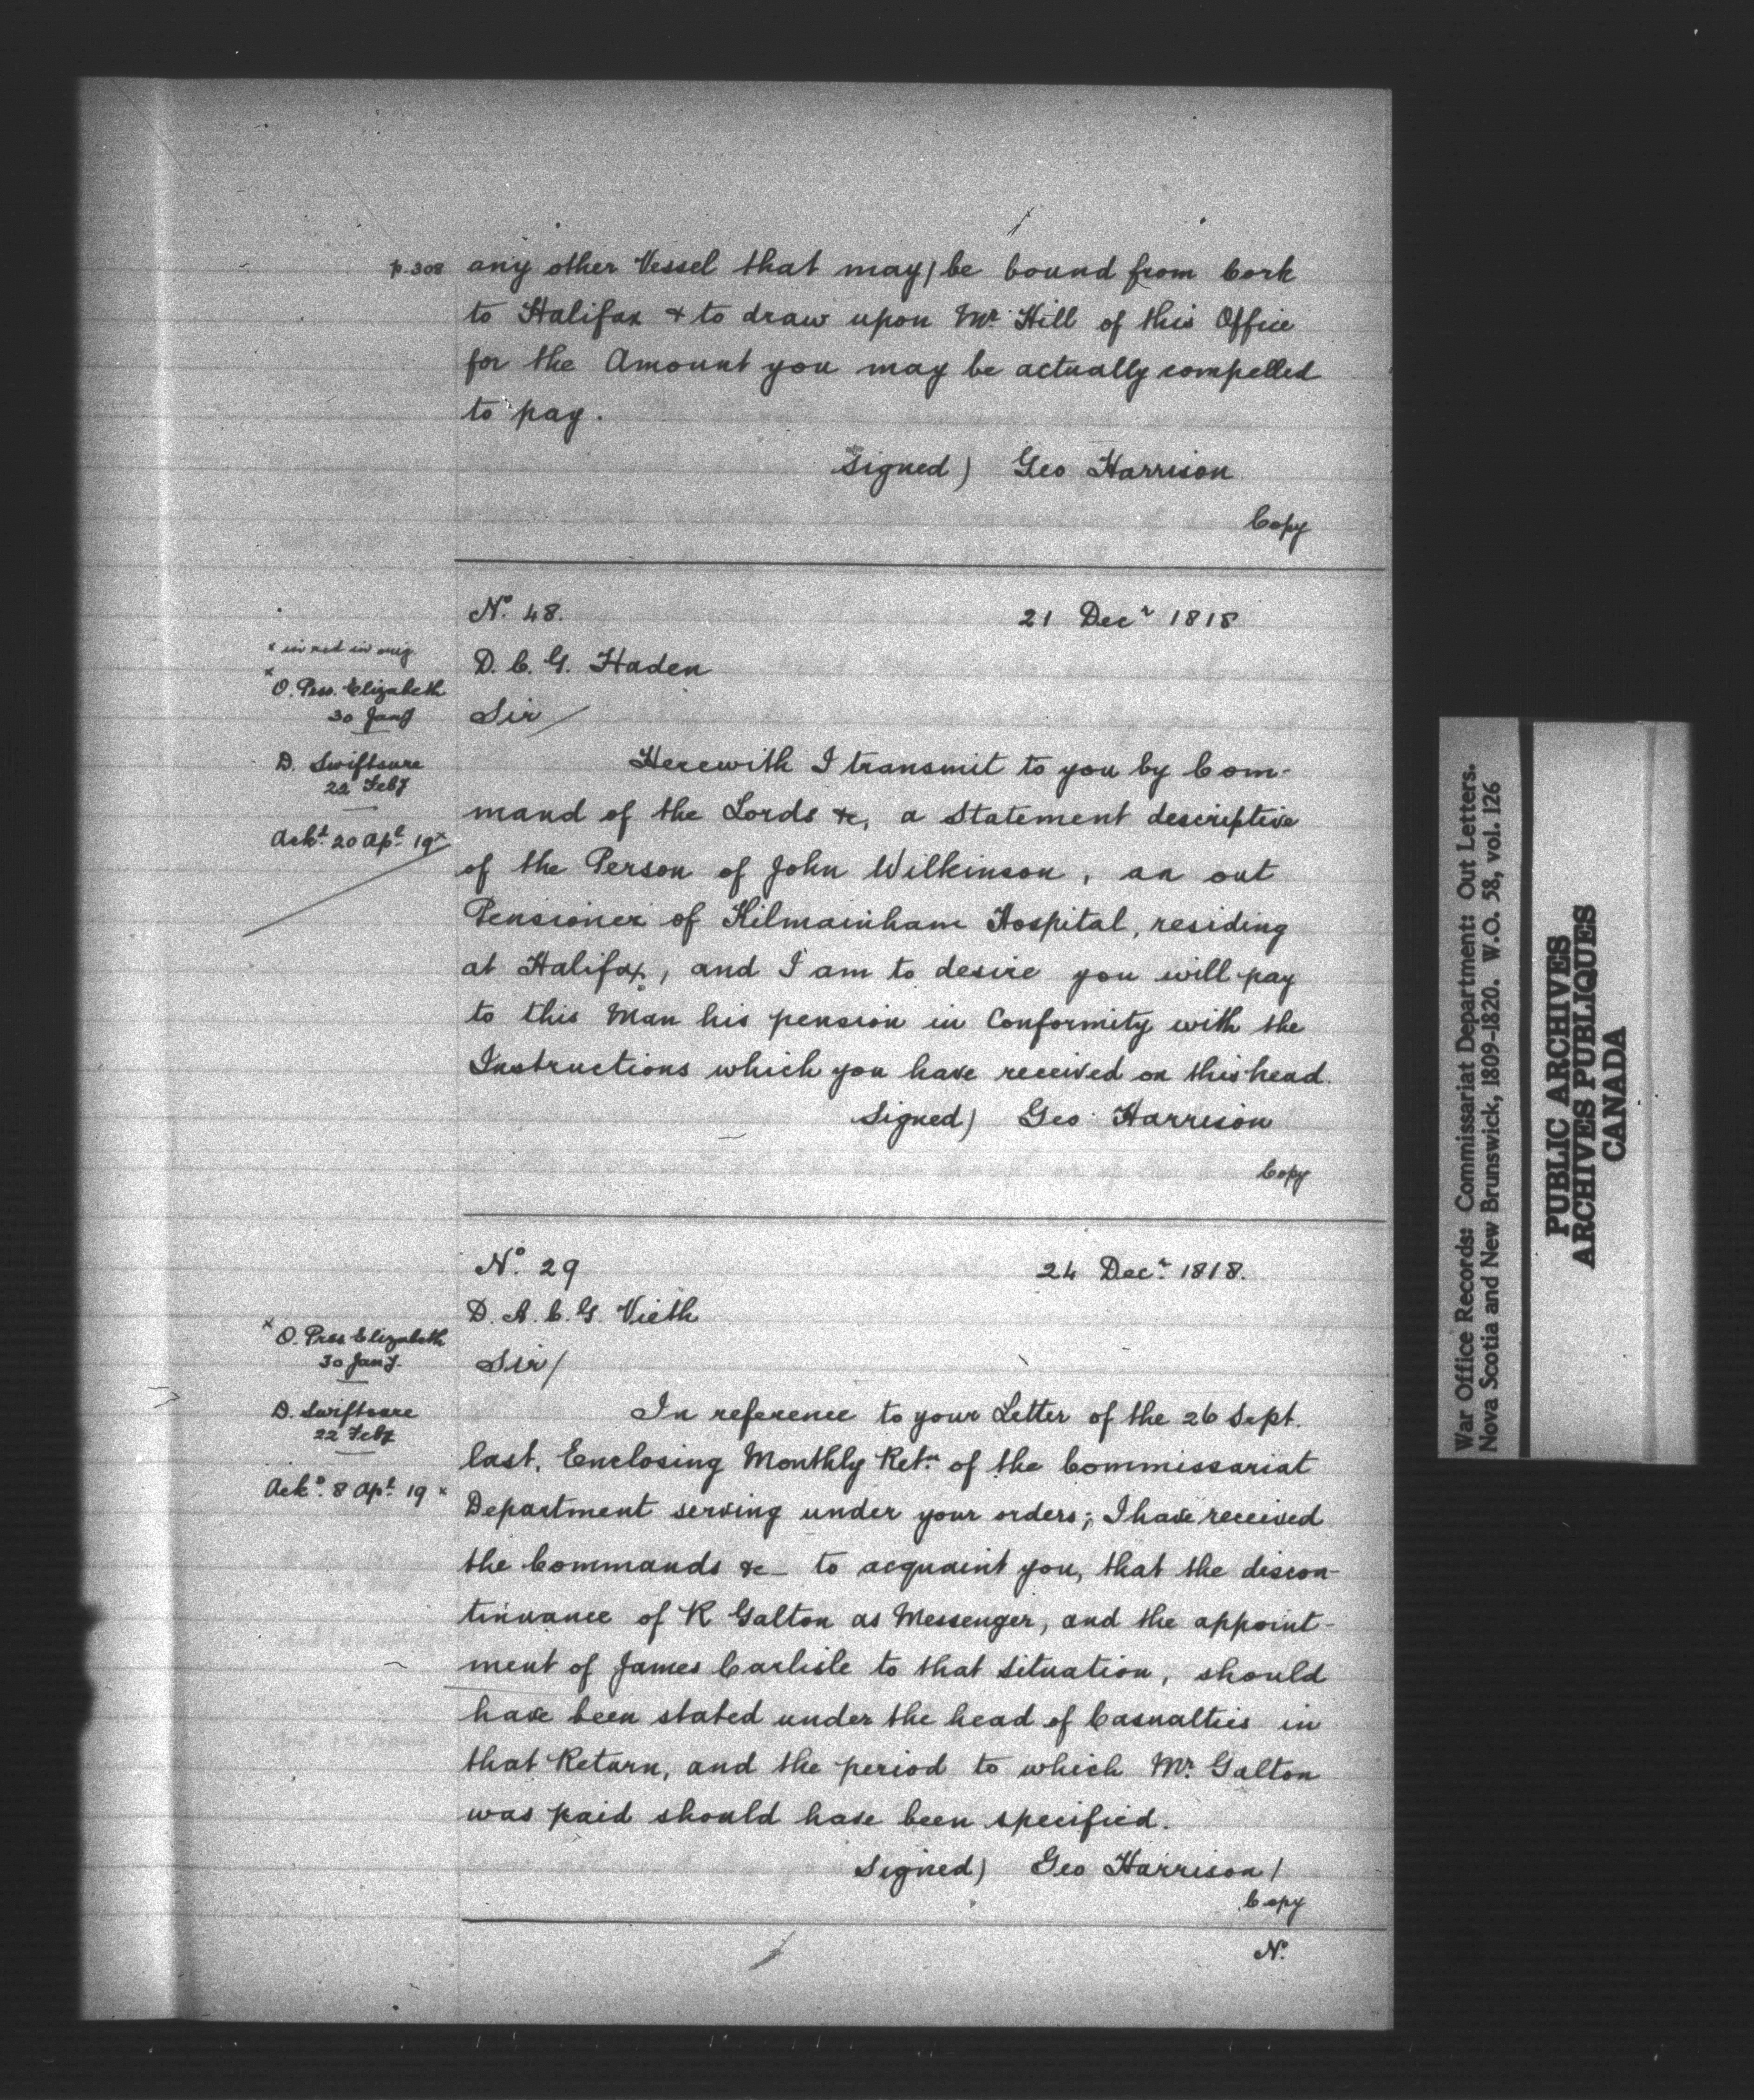 p. 308 any other Vessel that may/be bound from Cork
to Halifax & to draw upon Mr. Hill of this Office
for the Amount you may be actually compelled
to pay.
Signed) Geo Harrison
Copy
No. 48. 21 Decr 1818
x in red in orig.
D. C. G. Haden
x O. Pss. Elizabeth
30 Jany
Sir/
D. Swiftsure
22 Feby
Herewith I transmit to you by Com-
mand of the Lords &c, a Statement descriptive
Ackd. 20 Apl. 19 x
of the Person of John Wilkinson, an out
Pensioner of Kilmainham Hospital, residing
at Halifax, and I am to desire you will pay
to this Man his pension in Conformity with the
Instructions which you have received on this head.
Signed) Geo Harrison
Copy
No. 29 24 Decr. 1818.
D. A. C. G. Vieth
x O. Prss Elizabeth
30 Jany.
Sir/
D. Swiftsure
22 Feby
In reference to your Letter of the 26 Sept.
last, Enclosing Monthly Retn. of the Commissariat
Ackd. 8 Apl. 19 x
Department serving under your orders; I have received
the Commands &c - to acquaint you, that the discon-
tinuance of R Galton as Messenger, and the appoint-
ment of James Carlisle to that situation, should
have been stated under the head of Casualties in
that Return, and the period to which Mr. Galton
was paid should have been specified.
Signed) Geo Harrison/
Copy
No.
War Office Records: Commissariat Department: Out Letters.
Nova Scotia and New Brunswick, 1809-1820. W.O. 58, vol. 126
PUBLIC ARCHIVES
ARCHIVES PUBLIQUES
CANADA